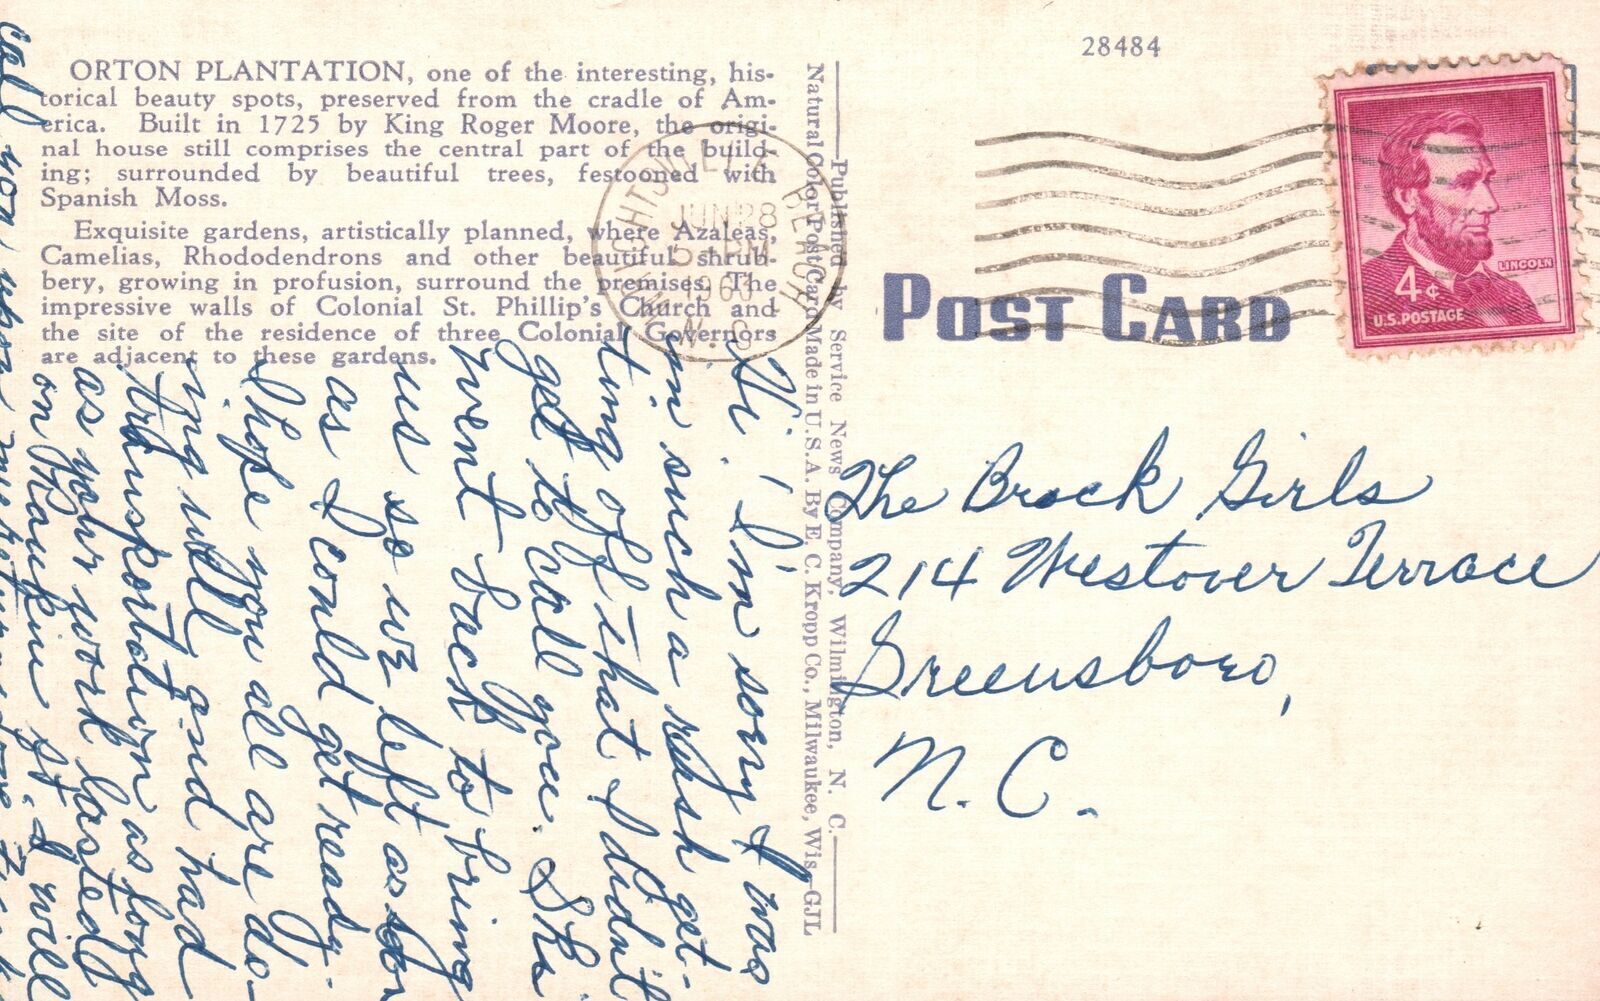 28484
ORTON PLANTATION, one of the interesting, his-
torical beauty spots, preserved from the cradle of Am-
erica. Built in 1725 by King Roger Moore, the origi-
nal house still comprises the central part of the build-
ing; surrounded by beautiful trees, festooned with
Spanish Moss.
Exquisite gardens, artistically planned, where Azaleas,
Camelias, Rhododendrons and other beautiful shrub-
bery, growing in profusion, surround the premises. The
impressive walls of Colonial St. Phillip's Church and
the site of the residence of three Colonial Governors
are adjacent to these gardens.
WRIGHTSVILLE BEACH
JUN 28
5 PM
1963
N.C.
Published by Service News Company, Wilmington, N. C.
Natural Color Post Card Made in U. S. A. By E. C. Kropp Co., Milwaukee, Wis.—GJL
POST CARD
LINCOLN
4¢
U.S. POSTAGE
Hi! I'm sorry I was
in such a rush get-
ting off that I didn't
get to call you. She
went back to bring
us so we left as soon
as I could get ready.
I hope you all are do-
ing well and had
transportation as long
as your work lasted
on Rankin St. I will
call you when
The Brock Girls
214 Westover Terrace
Greensboro,
N. C.